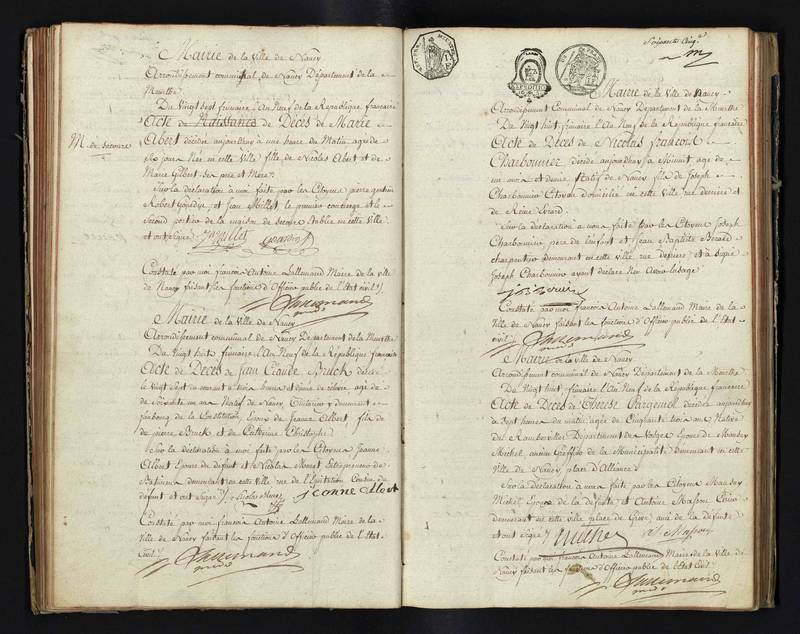 Mairie de la Ville de Nancy
Arrondissement communal de Nancy Département de la
Meurthe
Du Vingt Sept frimaire l'An Neuf de la République française
Acte de Naissance de Décès de Marie
M. de secours
Abert décédée aujourdhuy à une heure du Matin agée de
jour Née en cette Ville fille de Nicolas Abert et de
Marie Gilbert ses père et Mere
Sur la déclaration à moi faite par les Citoyens pierre
Robert et Jean Millet le premier concierge et le
Second portier de la maison de secours établie en cette Ville
et ont signé Jn Millet
Constaté par moi françois Antoine Lallemand Maire de la ville
de Nancy faisant les fonctions d'Officier public de l'état civil
Lallemand
Mairie de la Ville de Nancy
Arrondissement communal de Nancy Département de la Meurthe
Du Vingt huit frimaire l'An Neuf de la République française
Acte de Décès de Jean Claude Bruck décédé
le Vingt Sept du courant à trois heures et demie de relevée agé de
de Soixante un ans Natif de Nancy demeurant
faubourg de la Constitution Epoux de Jeanne Albert fils de
de pierre Bruck et de Catherine Christophe
Sur la déclaration à moi faite par les Citoyens Jeanne
Albert Epouse du defunt et Nicolas Entrepreneur de
Batimens demeurant en cette Ville rue de l'Equitation Cousin du
defunt et ont signé Nicolas jeanne Albert
Constaté par moi françois Antoine Lallemand Maire de la
Ville de Nancy faisant les fonctions d'Officier public de l'état
Civil
Lallemand
Soixante Cinq
Mairie de la Ville de Nancy
Arrondissement Communal de Nancy Département de la Meurthe
Du Vingt huit frimaire l'An Neuf de la République française
Acte de Décès de Nicolas françois
Charbonnier décédé aujourdhuy à Minuit agé de
un mois et demie Natif de Nancy fils de Joseph
Charbonnier Citoyen domicilié en cette Ville rue derrière et
de Reine Evrard
Sur la déclaration à moi faite par les Citoyens Joseph
Charbonnier père de l'enfant et Jean Baptiste
charpentier demeurant en cette Ville rue derrière et a signé
Joseph Charbonnier ayant déclaré N'en avoir l'usage
Constaté par moi françois Antoine Lallemand Maire de la
Ville de Nancy faisant les fonctions d'Officier public de l'état
civil
Lallemand
Mairie de la Ville de Nancy
Arrondissement communal de Nancy Département de la Meurthe
Du Vingt huit frimaire l'An Neuf de la République française
Acte de Décès de Thérèse décédée aujourdhuy
à Sept heures du matin agée de Cinquante trois ans Native
de Rambervillier Département des Vosges Epouse de
Michel ancien Greffier de la Municipalité demeurant en cette
Ville de Nancy, place d'Alliance
Sur la déclaration à moi faite par les Citoyens
Michel Epoux de la défunte et Antoine Masson
demeurant en cette Ville place de Grève ami de la défunte
et ont signé Michel A. Masson
Constaté par moi françois Antoine Lallemand Maire de la Ville de
Nancy faisant les fonctions d'Officier public de l'état Civil
Lallemand